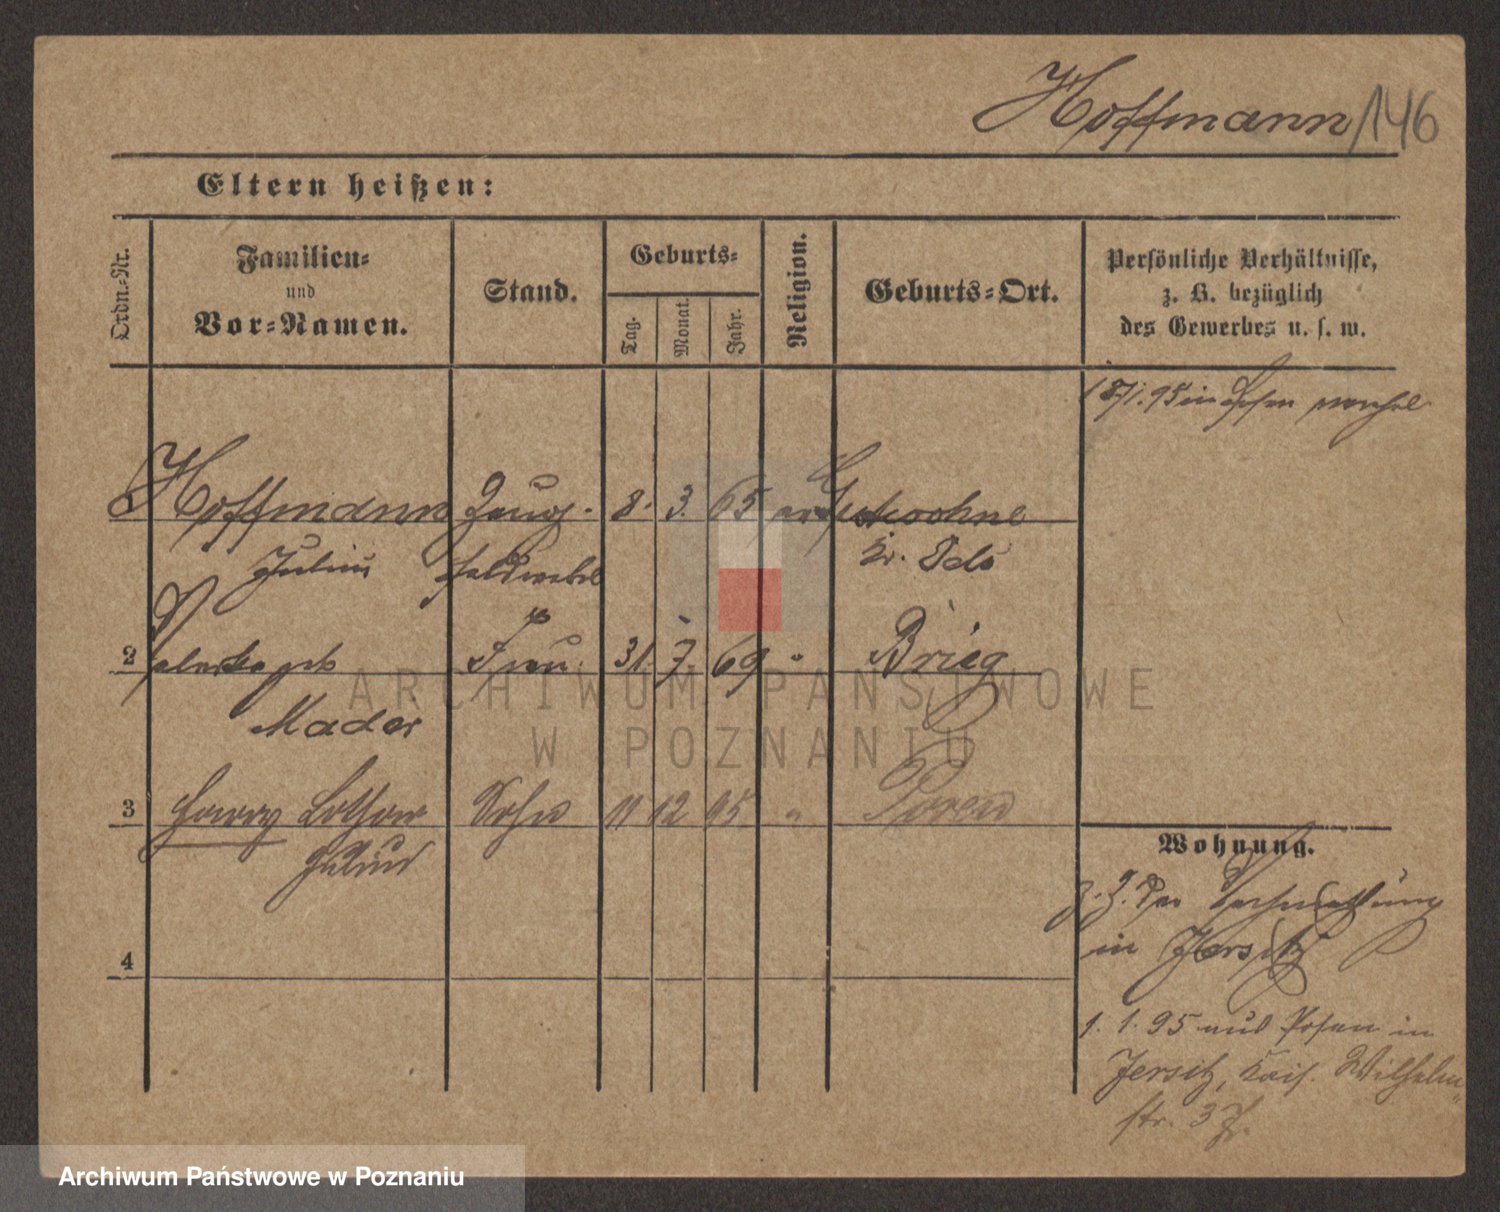 Hoffmann/146
Eltern heißen:
Ordn.-Nr.
Familien-
und
Vor-Namen.
Stand.
Geburts-
Tag.
Monat.
Jahr.
Religion.
Geburts-Ort.
Persönliche Verhältnisse,
z. B. bezüglich
des Gewerbes u. s. w.
Hoffmann Zeug- 8. 3. 65
Julius feldwebel
Kr. Oels
2 Frau 31. 7. 69 " Brieg
Mader
3 Lothar Sohn 11 12 95 " Posen
4
Wohnung.
z. Z.
in Jersitz
1. 1. 95 aus Posen in
Jersitz, Kais. Wilhelm
str. 37.
ARCHIWUM PAŃSTWOWE
W POZNANIU
Archiwum Państwowe w Poznaniu